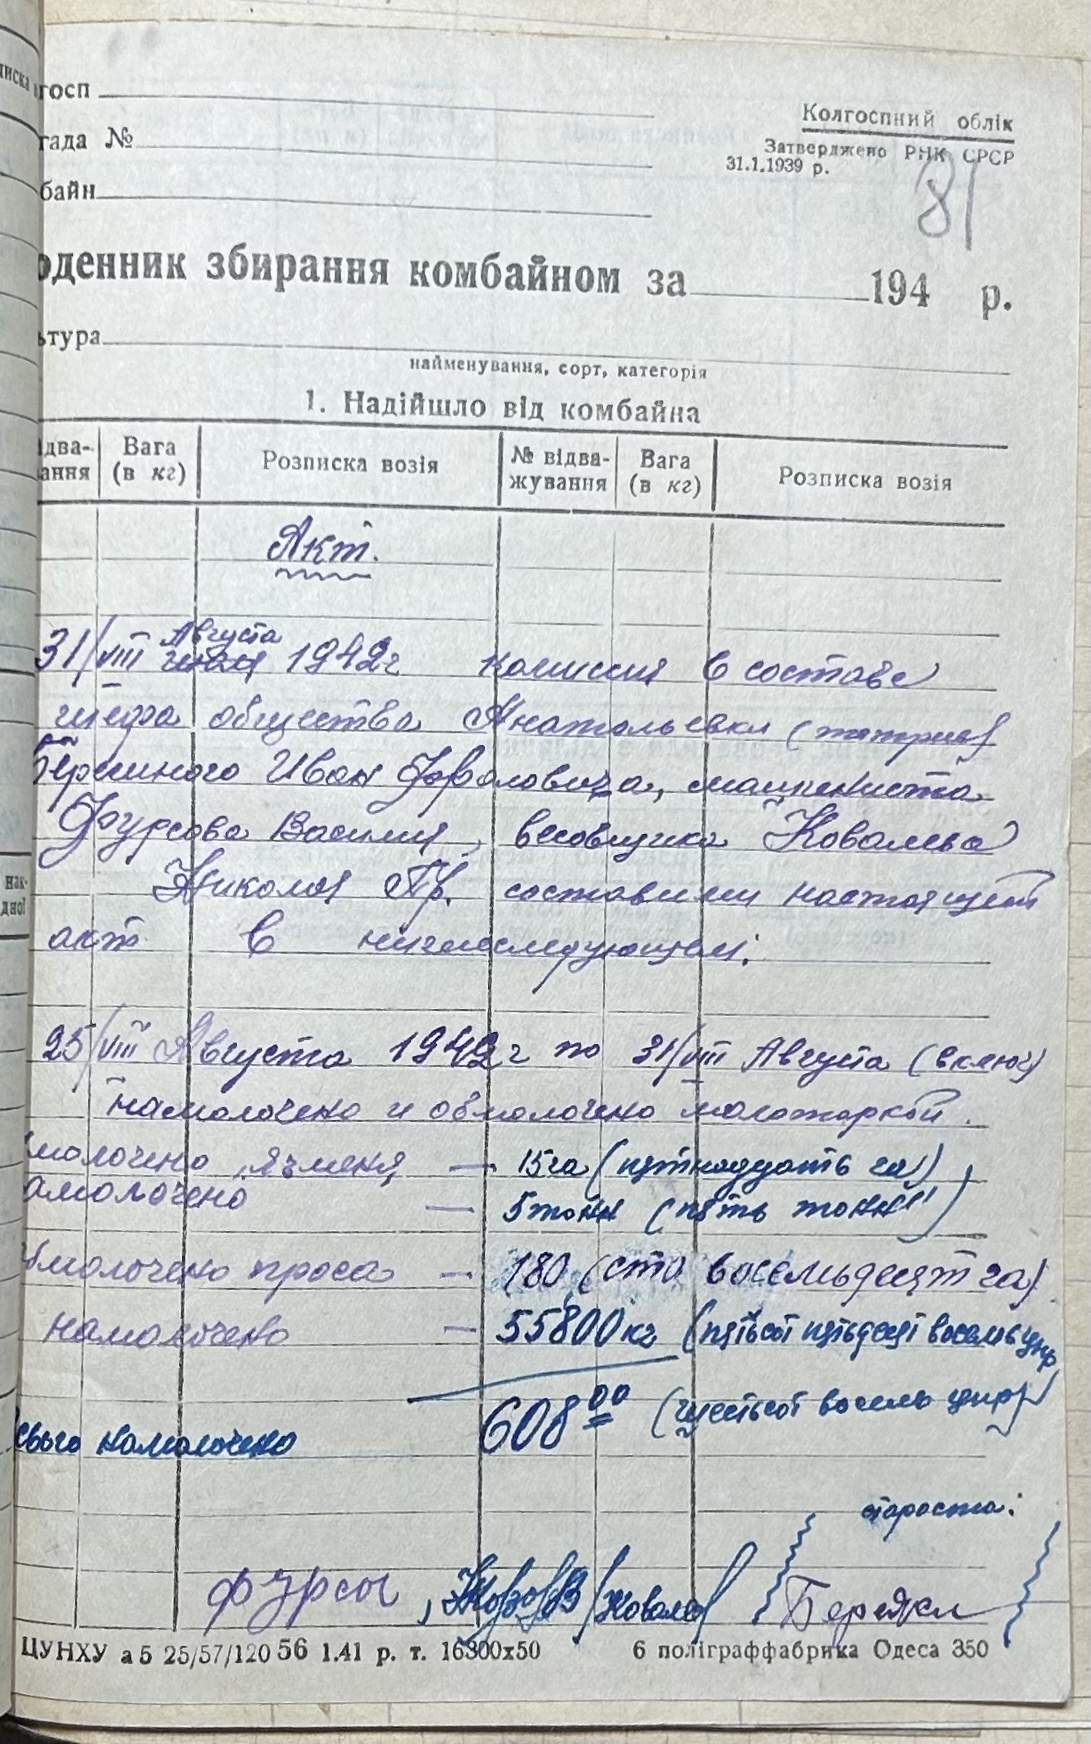 госп
гада №
Колгоспний облік
Затверджено РНК СРСР
31.1.1939 р.
байн
81
оденник збирання комбайном за 194 р.
ьтура
найменування, сорт, категорія
1. Надійшло від комбайна
ідва-
ання
Вага
(в кг)
Розписка возія
№ відва-
жування
Вага
(в кг)
Розписка возія
Акт.
Августа
31/VIII 1942 г комиссия в составе
шефа общества Анатольевки
Ивана, машиниста
Фурсова Василия, весовщика Ковалева
Николая Гр. составили настоящий
акт в нижеследующем:
25/VIII Августа 1942 г по 31/VIII Августа (включ)
намолочено и обмолочено молотаркой.
молочено язменя, — 15 га (пятнадцать га)
амолочено — 5 тонн (пять тонн)
бмолочено проса — 180 (сто восемьдесят га)
намолочено — 55800 кг (пятьсот пятьдесят восемь цнр
608 00 (шестьсот восемь цнр)
сього намолочено
староста:
Фурсы
ЦУНХУ а5 25/57/120 56 1.41 р. т. 16300х50
6 поліграффабрика Одеса 350
нак-
дної